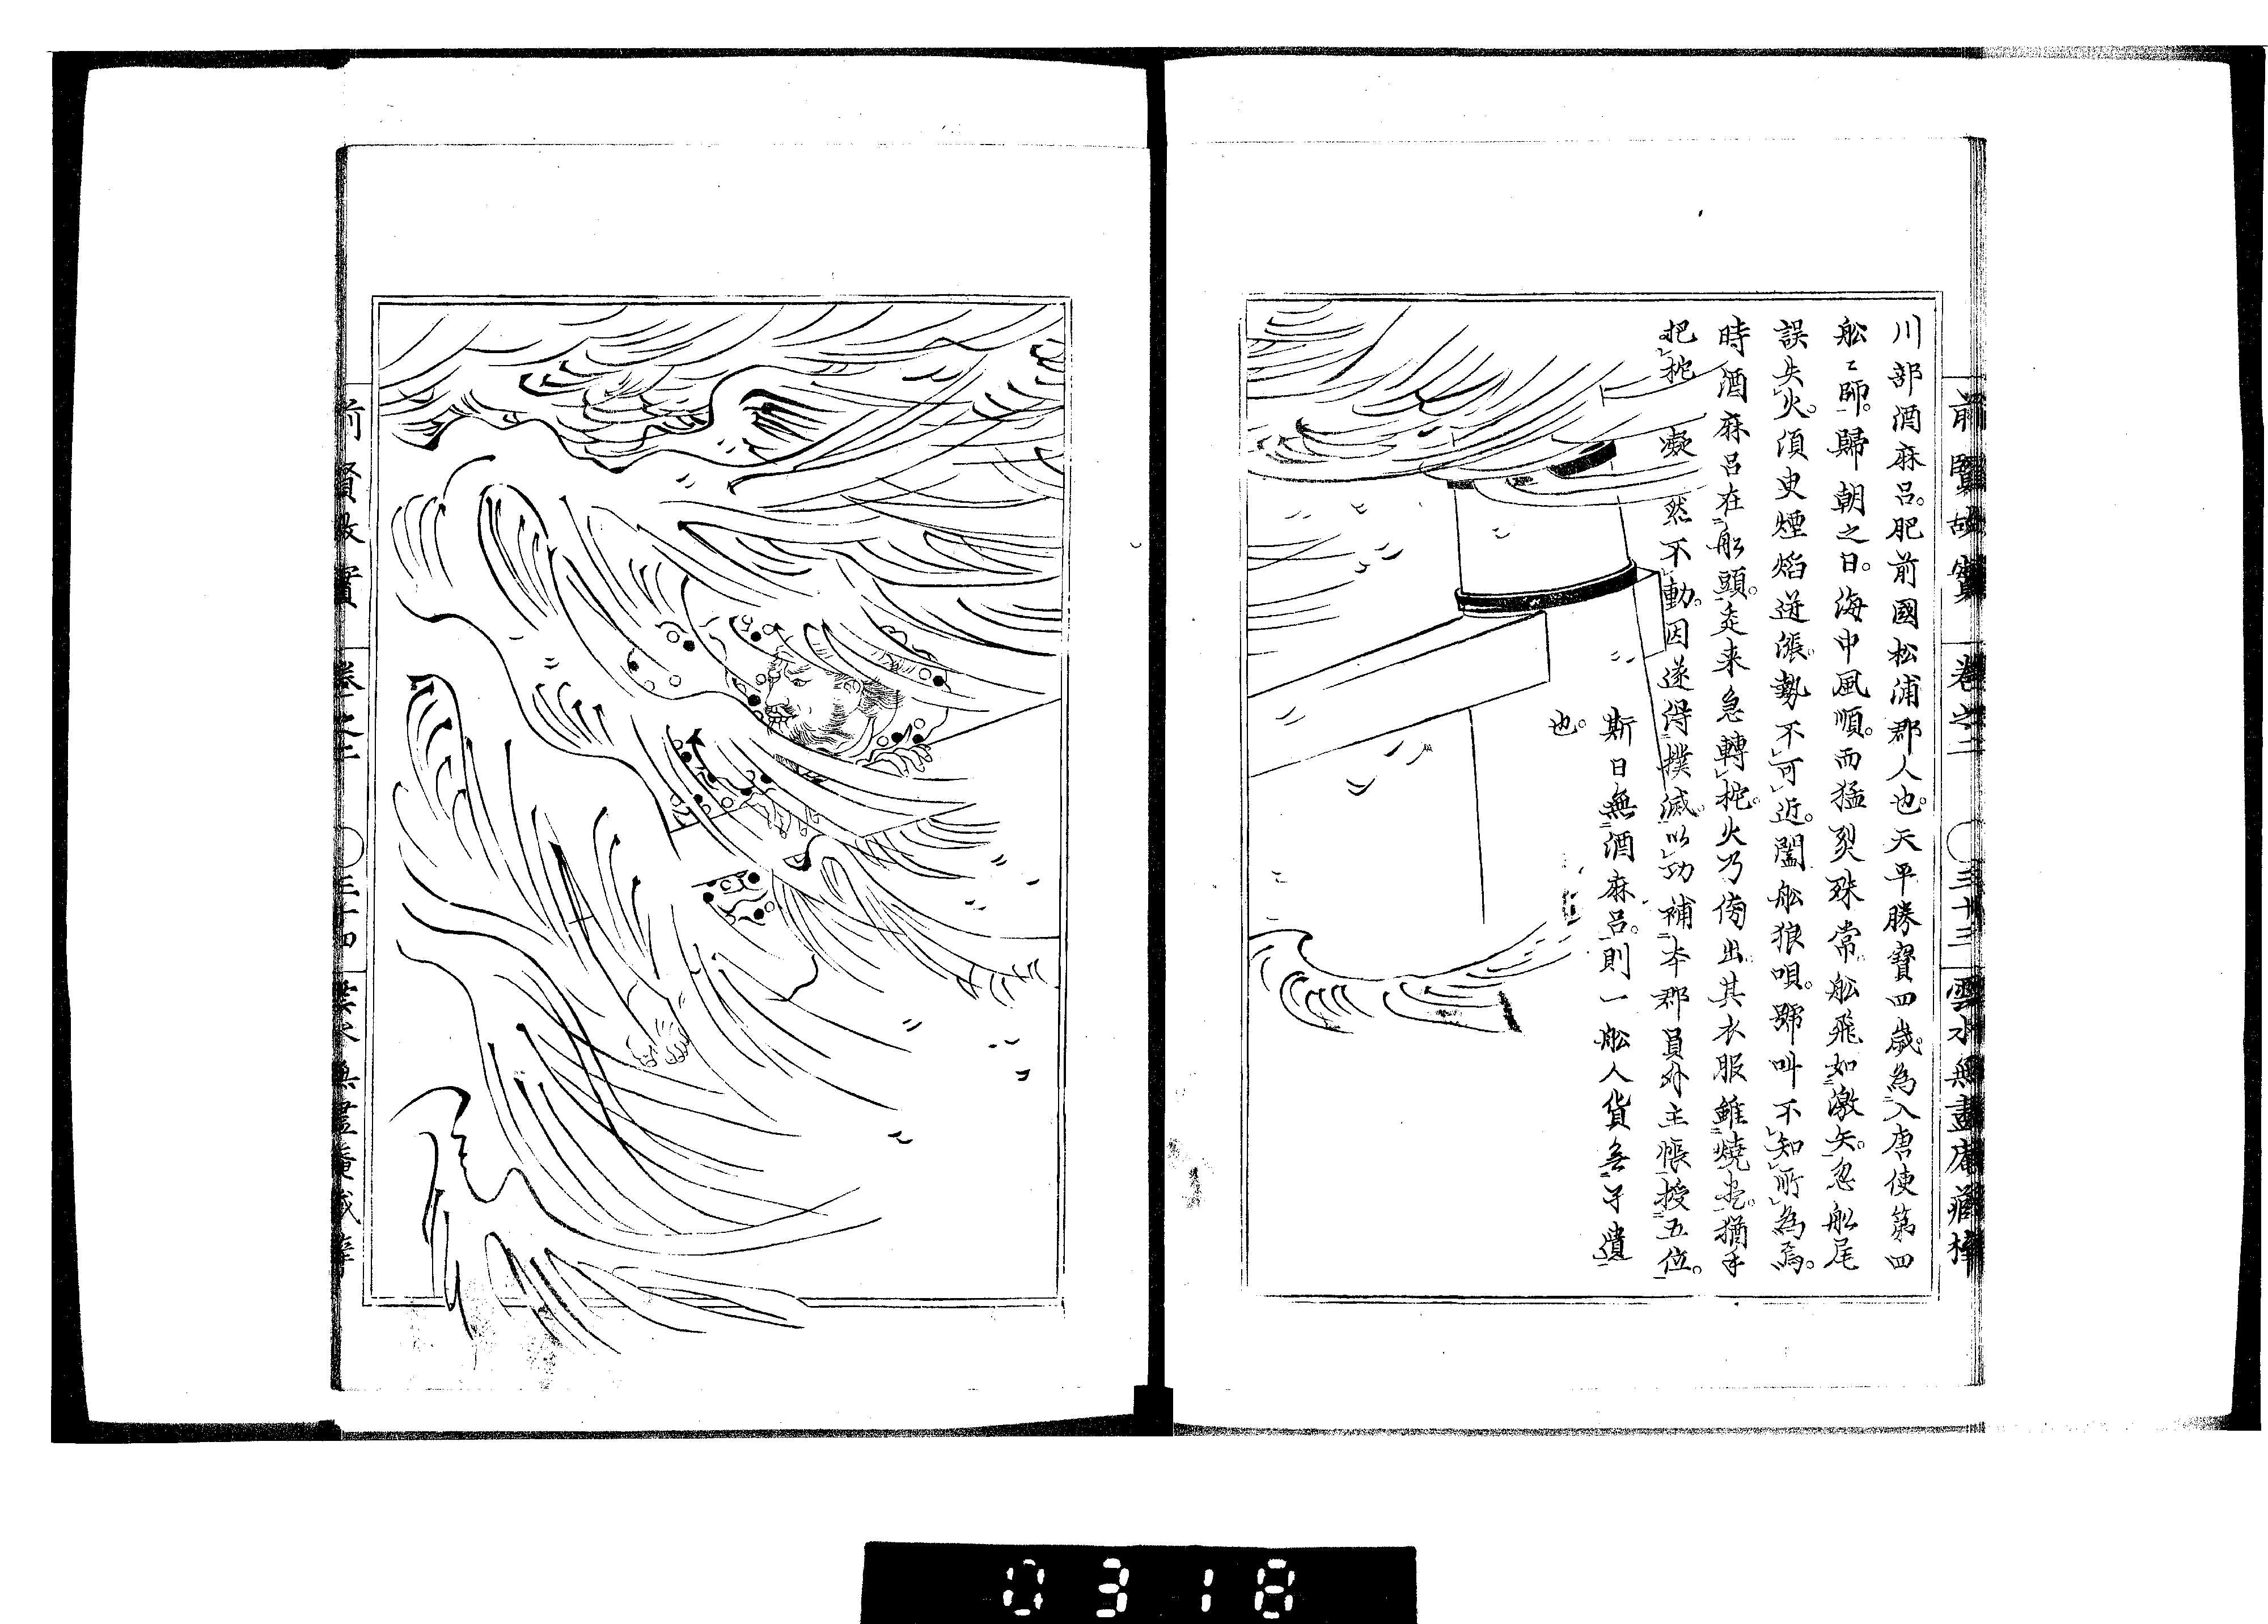 前賢故實 卷之二 〇三十三 雲水無盡庵藏梓
川部酒麻呂。肥前國松浦郡人也。天平勝寶四歲。為入唐使第四
舩〻師。歸朝之日。海中風順。而猛烈殊常。舩飛如激矢。忽舩尾
誤失火。須臾煙焰迸漲。勢不可近。闔舩狼唄。號叫不知所為焉。
時酒麻呂在舩頭。走来急轉柁。火乃傍出。其衣服雖燒盡。猶手
把柁凝然不動。因遂得撲滅。以功補本郡員外主帳。授五位。
斯日無酒麻呂。則一舩人貨無孑遺
也。
前賢故實 卷之二 〇三十四 雲水無盡庵藏梓
0318